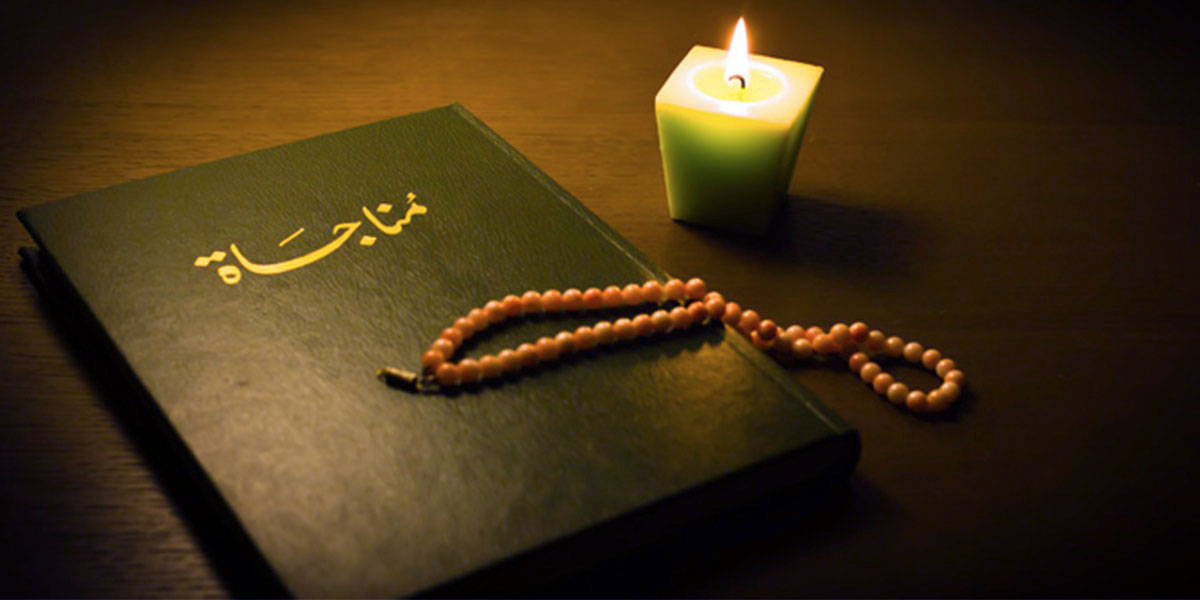 مُناجاة